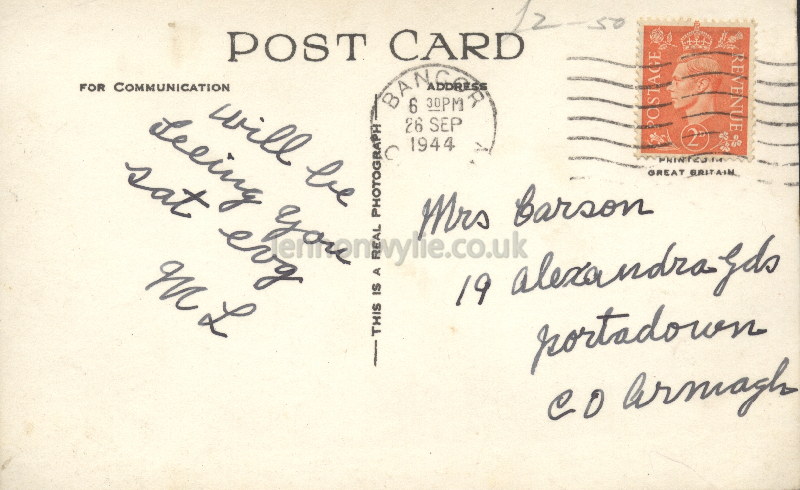 12-50
POST CARD
FOR COMMUNICATION
ADDRESS
BANGOR
6 30PM
26 SEP
1944
POSTAGE
REVENUE
2D
PRINTED IN
GREAT BRITAIN
THIS IS A REAL PHOTOGRAPH
will be
seeing you
sat evg
M L
Mrs Carson
19 Alexandra Gds
Portadown
CO Armagh
lennonwylie.co.uk